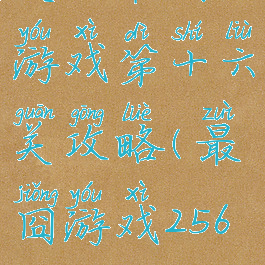 yóu xì dì shí liù
游戏第十六
guān gōng lüè zuì
关攻略(最
jiǒng yóu xì
囧游戏256